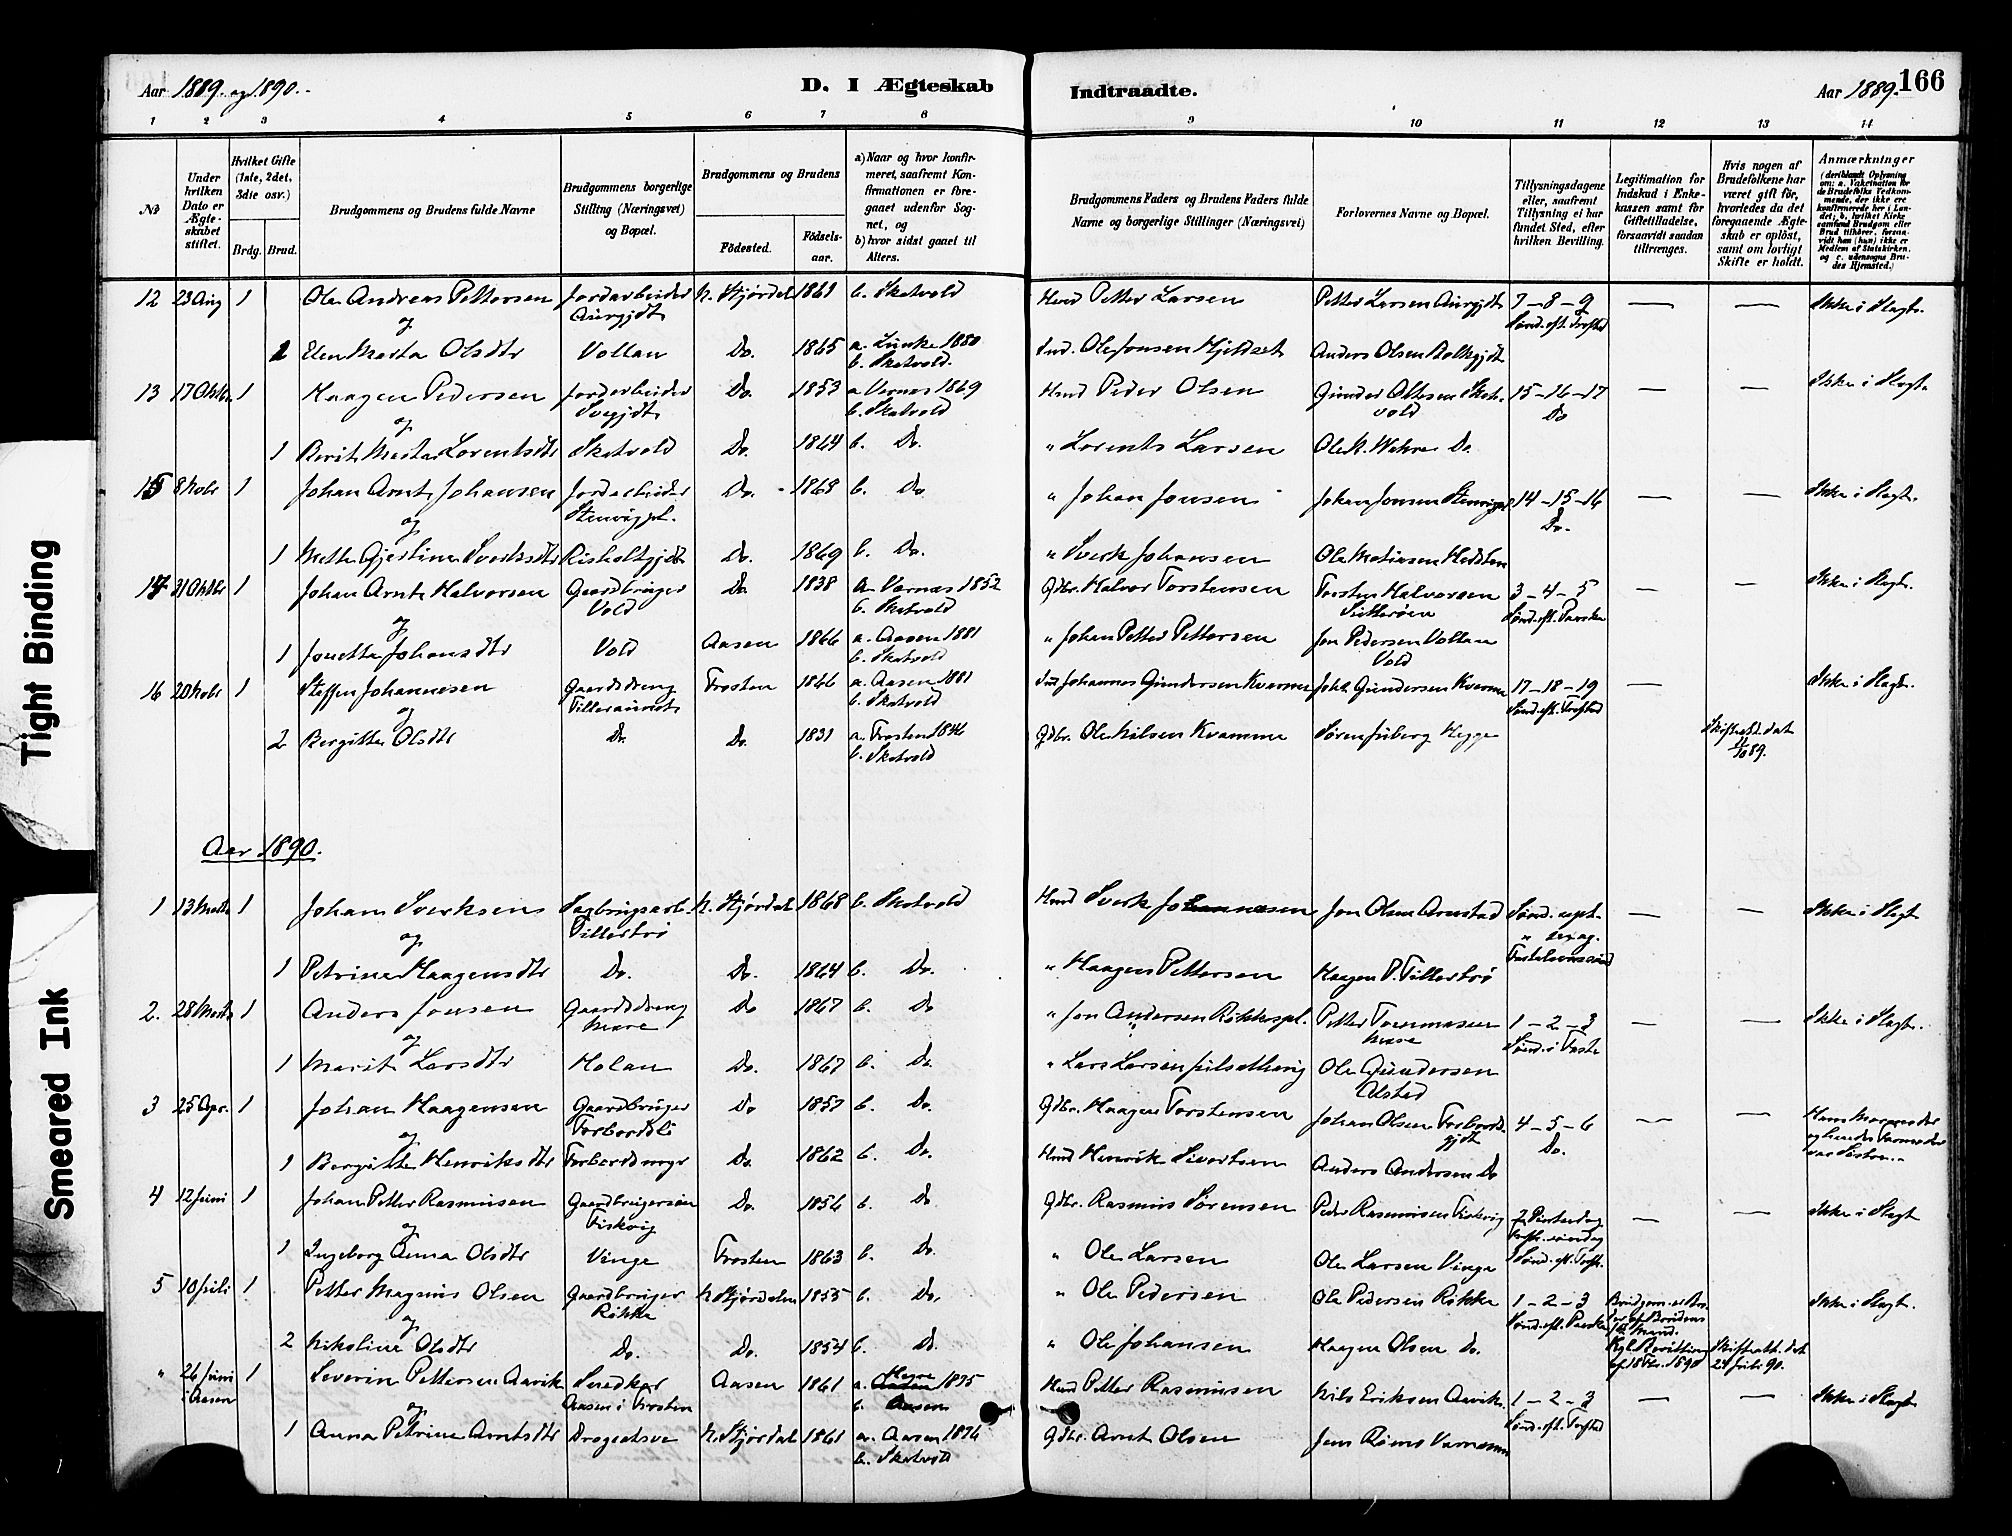 Aar 1889 og 1890.
D. I Ægteskab
Indtraadte.
Aar 1889. 166
1 2 3 4 5 6 7 8 9 10 11 12 13 14
No
Under hvilken Dato er Ægteskabet stiftet.
Hvilket Gifte (1ste, 2det, 3die osv.)
Brdg. Brud.
Brudgommens og Brudens fulde Navne
Brudgommens borgerlige Stilling (Næringsvei) og Bopæl.
Brudgommens og Brudens
Fødested. Fødselsaar.
a) Naar og hvor konfirmeret, saafremt Konfirmationen er foregaaet udenfor Sognet, og
b) hvor sidst gaaet til Alters.
Brudgommens Faders og Brudens Faders fulde Navne og borgerlige Stillinger (Næringsvei)
Forlovernes Navne og Bopæl.
Tillysningsdagene eller, saafremt Tillysning ei har fundet Sted, efter hvilken Bevilling.
Legitimation for Indskud i Enkekassen samt for Giftetilladelse, forsaavidt saadan tiltrænges.
Hvis nogen af Brudefolkene har været gift før, hvorledes da det foregaaende Ægteskab er opløst, samt om lovligt Skifte er holdt.
Anmærkninger
(deriblandt Oplysning om: a. Vakcination for de Brudefolks Vedkommende, der ikke ere konfirmerede her i Landet; b. hvilket Kirkesamfund Brudgom eller Brud tilhører, forsaavidt han (hun) ikke er Medlem af Statskirken, og c. udensogns Brudes Hjemsted.)
12 23 Aug 1 Ole Andreas Pettersen Jordarbeider N. Stjørdal 1861 b. Skatvold Husmd Petter Larsen Petter Larsen Aurgjdt 7-8-9 — — Ikke i Slagt.
og Aurgjdt Sønd. eft. Trefold
1 Elen Marta Olsdtr Vollan Do. 1865 a. Lånke 1880 Ind. Ole Jonsen Hjeldset Anders Olsen
b. Skatvold.
13 17 Oktbr 1 Haagen Pedersen Jordarbeider Do. 1853 a Værnes 1869 Husmd Peder Olsen Gunder Oltesen Skatvold 15-16-17 — — Ikke i Slagt.
og b. Skatvold Do
1 Berit Marta Lorentsdtr Skatvold Do. 1864 b. Do. " Lorents Larsen Ole N. Do.
15 8 Novbr 1 Johan Arnt Johansen Jordarbeider Do. 1868 b. Do " Johan Jonsen Johan Jonsen 14-15-16 — — Ikke i Slagt.
og Do.
1 Mette Gjertine Sverksdtr Risholtgjdt Do. 1869 b. Do. " Sverk Johansen Ole Matiasen
14 31 Oktbr 1 Johan Arnt Halvorsen Gaardbruger Do 1838 a. Værnes 1852 Gdbr. Halvor Torstensen Torsten Halvorsen 3-4-5 — — Ikke i Slagt.
og Vold b. Skatvold Sønd. eft. Paaske
1 Jonetta Johansdtr Vold Aasen 1866 a. Aasen 1881 " Johan Petter Pettersen Jon Pedersen Vollan
b. Skatvold Vold
16 20 Novbr 1 Steffen Johannesen Gaardsdreng Frosten 1866 a. Aasen 1881 Ind Johannes Gundersen Joh. Gundersen 17-18-19 — Ikke i Slagt.
og b. Skatvold Sønd. eft. Trefold
2 Bergitte Olsdtr Do. Do. 1831 a. Frosten 1846 Gdbr. Ole Nilsen Kvamme Søren Hegge Skifteatt. dat
b. Skatvold 89.
Aar 1890.
1 13 Marts 1 Johan Sverksen Sagbrugsarb. N. Stjørdal 1868 b. Skatvold Husmd Sverk Johannesen Jon Olsen Arnstad — — Ikke i Slagt
og Tillertrø
1 Petrine Haagensdtr Do. Do. 1864 b. Do. " Haagen Pettersen Haagen P. Tillertrø Fastelavnssønd
2. 28 Marts 1 Anders Jonsen Gaardsdreng Do 1867 b. Do " Jon Andersen Røkkespl. Petter Tommasen 1-2-3 — — Ikke i Slagt.
og Mære Mære Sønd. i Faste
1 Marit Larsdtr Holan Do. 1867 b. Do. " Lars Larsen Ole Gundersen
Alstad
3 25 Apr. 1 Johan Haagensen Gaardbruger Do 1857 b. Do. Gdbr. Haagen Torstensen Johan Olsen Forbordsgjdt 4-5-6 — — Hans Mormoder
og Forbordsli Do. og hendes Farmoder
1 Bergitte Henriksdtr Do. 1862 b. Do. Husmd Henrik Sivertsen Anders Andersen Do var Søstre.
4 12 Juni 1 Johan Petter Rasmussen Gaardbrugersøn Do. 1856 b. Do Gdbr. Rasmus Sørensen Peder Rasmussen Fiskvig 2 Pintsedag — — Ikke i Slagt
og Fiskvig
1 Ingeborg Anna Olsdtr Vinge Frosten 1863 b. Do. " Ole Larsen Ole Larsen Vinge 1 Sønd. eft. Tref.
5 10 Juli 1 Petter Magnus Olsen Gaardbruger N. Stjørdalen 1855 b. Do. " Ole Pedersen Ole Pedersen Røkke 1-2-3 Brudgom. er Broder af Brudens Ikke i Slagt.
og Røkke Sønd. eft. Paaske Mand.
2 Nikoline Olsdtr Do. Do. 1854 b. Do. " Ole Johansen Haagen Olsen Do. Kgl. Bevilling af 18 1890 Skifteatt. dat 24 Juli 90.
" 26 Juni 1 Severin Pettersen Aavik Snedker Aasen 1861 a. Hegre 1875 Husmd Petter Rasmussen Nils Eriksen Aavik 1-2-3 — — Ikke i Slagt
i Aasen og Aasen i Frosten b. Aasen Sønd. eft. Trefold
1 Anna Petrine Arntsdtr N. Stjørdal 1861 a. Aasen 1876 Gdbr. Arnt Olsen Jens
b. Skatvold
Tight Binding
Smeared Ink